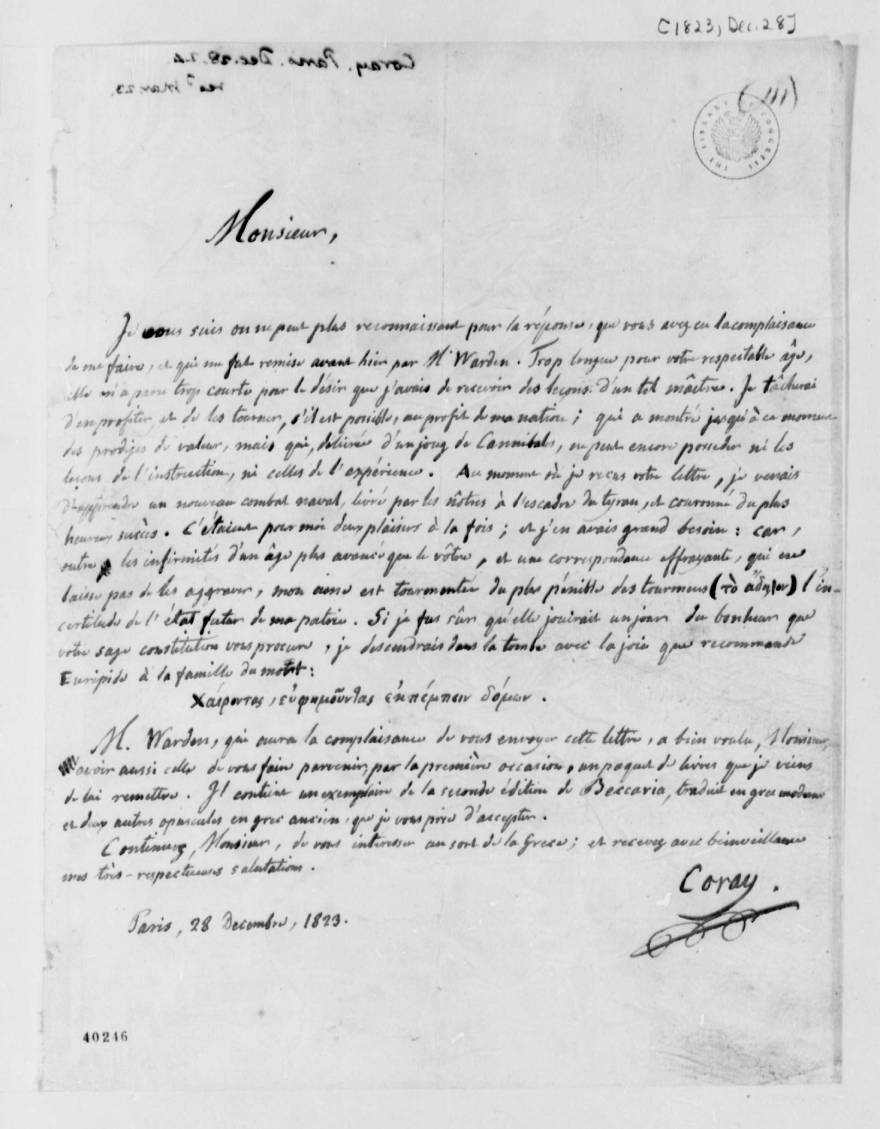 [1823, Dec. 28]
Coray. Paris. Dec. 28. 23
recd Mar. 23.
(111)
THE LIBRARY OF CONGRESS
Monsieur,
Je vous suis on ne peut plus reconnaissant pour la réponse, que vous avez eu la complaisance
de me faire, et qui me fut remise avant hier par Mr Warden. Trop longue pour votre respectable âge,
elle m'a paru trop courte pour le désir que j'avais de recevoir des leçons d'un tel maître. Je tâcherai
d'en profiter, et de les tourner, s'il est possible, au profit de ma nation; qui a montré jusqu'à ce moment
des prodiges de valeur, mais qui, délivrée d'un joug de Cannibals, ne peut encore posséder ni les
leçons de l'instruction, ni celles de l'expérience. Au moment où je reçus votre lettre, je venais
d'apprendre un nouveau combat naval, livré par les nôtres à l'escadre du tyran, et couronné du plus
heureux succès. C'étaient pour moi deux plaisirs à la fois; et j'en avais grand besoin: car,
outre les infirmités d'un âge plus avancé que le vôtre, et une correspondance effrayante, qui ne
laisse pas de les aggraver, mon ame est tourmentée du plus pénible des tourmens (τὸ ἄδηλον) l'in-
certitude de l'état futur de ma patrie. Si je fus sûr qu'elle jouirait un jour du bonheur que
votre sage constitution vous procure, je descendrais dans la tombe avec la joie que recommande
Euripide à la famille du mort:
Χαίροντας, εὐφημοῦντας ἐκπέμπειν δόμων.
M. Warden, qui aura la complaisance de vous envoyer cette lettre, a bien voulu, Monsieur,
avoir aussi celle de vous faire parvenir, par la première occasion, un paquet de livres que je viens
de lui remettre. Il contient un exemplaire de la seconde édition de Beccaria, traduit en grec moderne
et deux autres opuscules en grec ancien, que je vous prie d'accepter.
Continuez, Monsieur, de vous intéresser au sort de la Grèce; et recevez avec bienveillance
mes très-respectueuses salutations.
Coray.
Paris, 28 Decembre, 1823.
40246